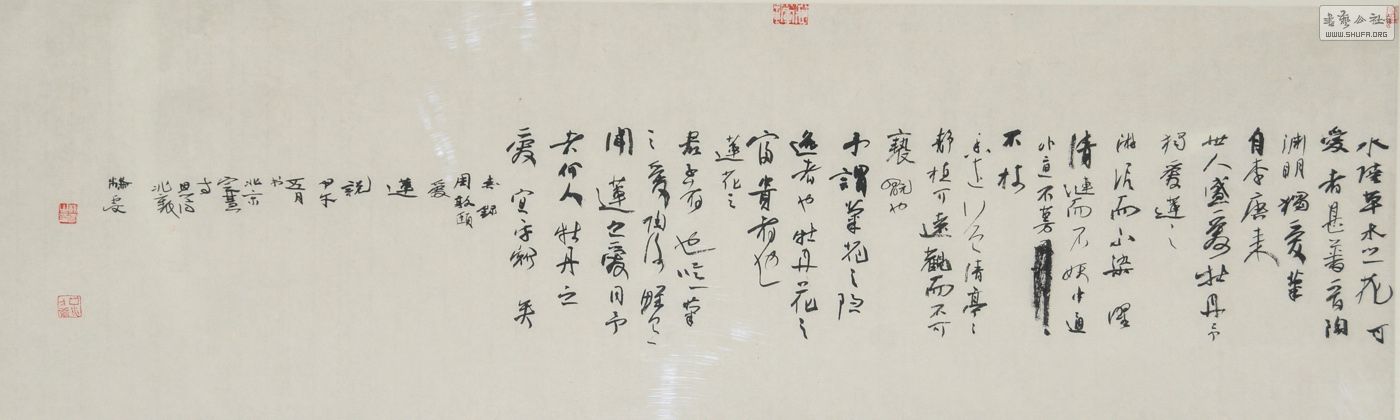 水陸草木之花可
愛者甚蕃晉陶
淵明獨愛菊
自李唐来
世人盛愛牡丹予
獨愛蓮之
淤泥而不染濯
清漣而不妖中通
外直不蔓
不枝
香遠清亭
静植可遠觀而不可
褻翫也
予謂菊花之隐
逸者也牡丹花之
富貴者也
蓮花之
君子者也噫菊
之愛陶後鮮
聞蓮之愛同予
者何人牡丹之
愛宜乎衆矣
右錄
周敦頤
愛
蓮
說
五月
北京
書藝公社
WWW.SHUFA.ORG